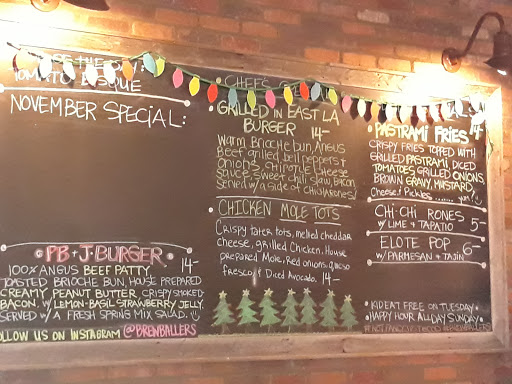 TOMATO BISQUE
NOVEMBER SPECIAL:
• PB + J • BURGER •
100% ANGUS BEEF PATTY 14-
TOASTED BRIOCHE BUN, HOUSE PREPARED
CREAMY PEANUT BUTTER, CRISPY SMOKED
BACON, W/ LEMON-BASIL STRAWBERRY JELLY.
SERVED W/ A FRESH SPRING MIX SALAD.
FOLLOW US ON INSTAGRAM @BREWBALLERS
CHEF'S
GRILLED IN EAST LA
BURGER 14-
Warm Brioche bun, Angus
Beef grilled, bell peppers +
Onions, chipotle cheese
Sauce, sweet chili slaw, Bacon
Served w/ a side of chicharones!
CHICKEN MOLE TOTS
Crispy Tater tots, melted cheddar
cheese, grilled Chicken, House
prepared Mole, Red onions, queso
fresco, & Diced Avocado. 14-
PASTRAMI FRIES 14-
CRISPY FRIES TOPPED WITH
GRILLED PASTRAMI, DICED
TOMATOES, GRILLED ONIONS,
BROWN GRAVY, MUSTARD,
Cheese & Pickles ....... yum!
CHI CHI RONES
W/ LIME & TAPATIO 5-
ELOTE POP 6-
W/ PARMESAN + TAJIN
• KID EAT FREE ON TUESDAY •
• HAPPY HOUR ALL DAY SUNDAY •